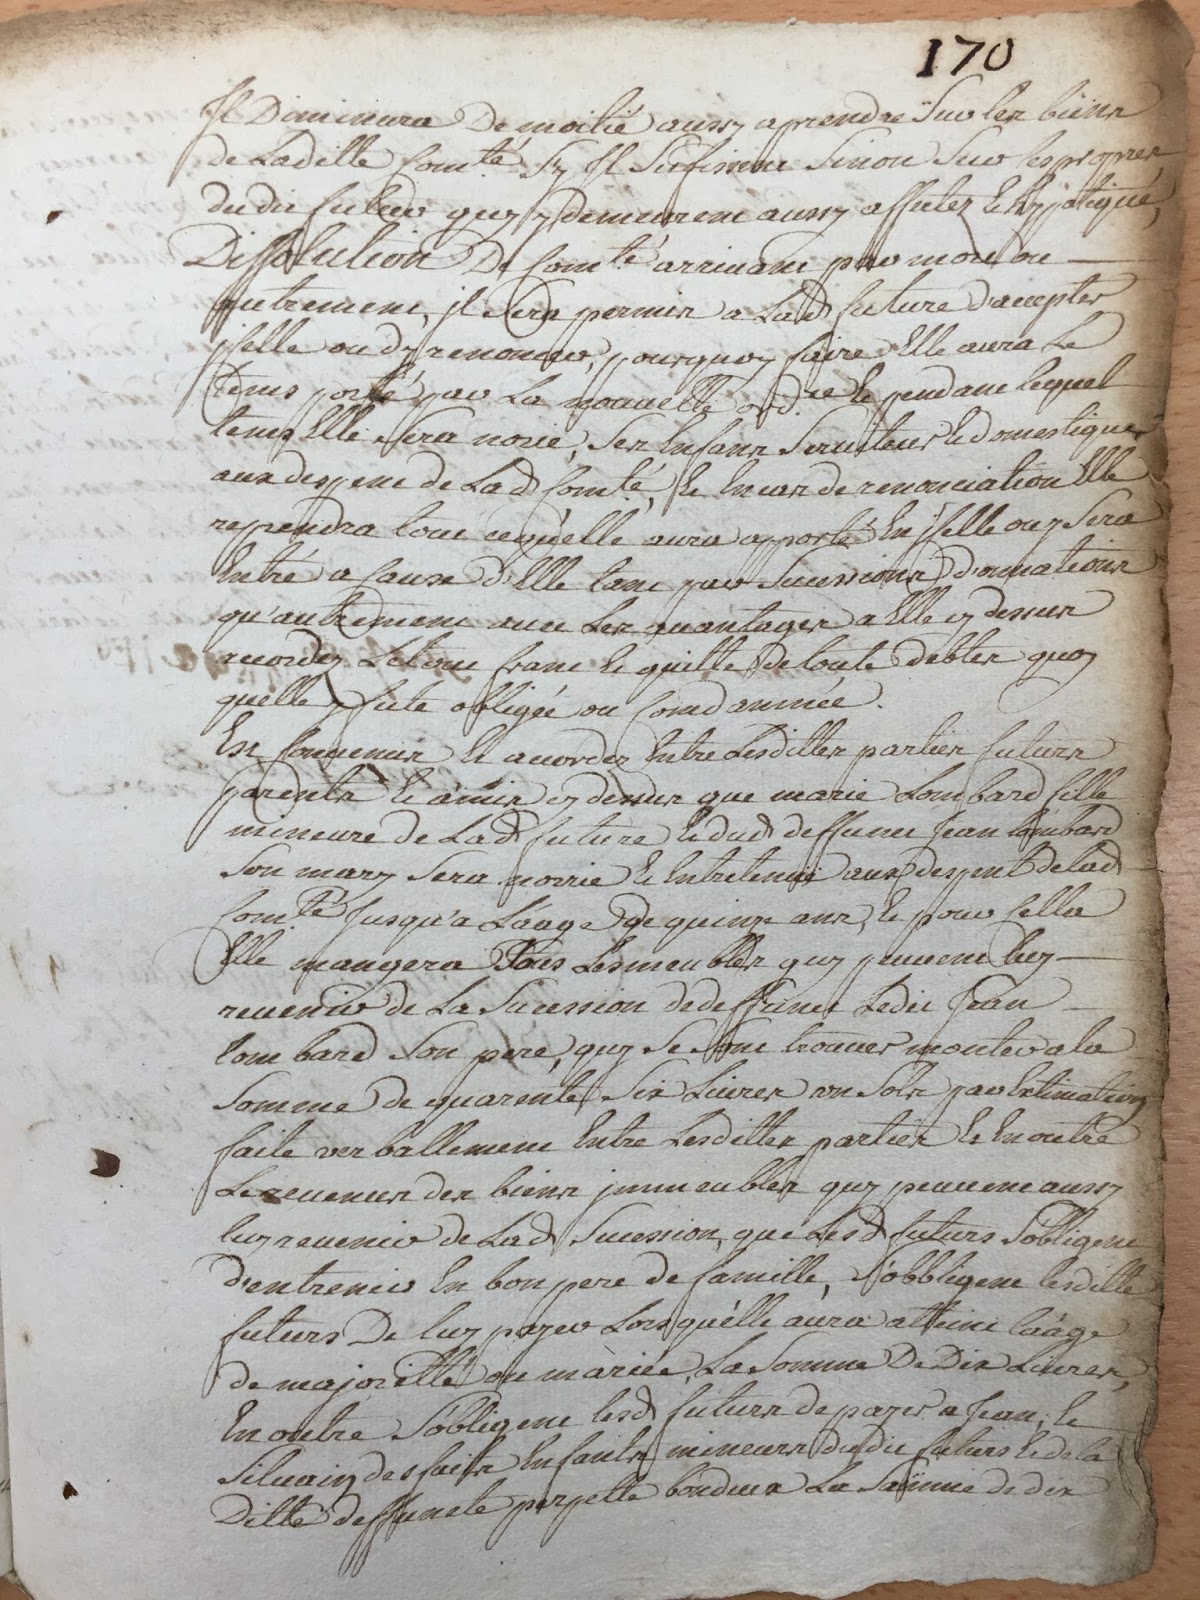 170
Il Diminura De moitié aussy aprendre Sur les biens
de Laditte Com.té Sy Il Sufissent Sinon Sur les propres
dudit futur quy y demeurent aussy affutez et hypotiqué,
Dissolution De Com.té arrivant par mort ou
autrement, il Sera permis a Lad future d'accepter
jcelle ou d'y renoncer, pourquoy faire Elle aura Le
tems porté par La nouvelle ord.ce Et pendant lequel
tems Elle Sera norie, Ses Enfans Serviteurs Et domestiques
aux despens de Lad Com.té, Et En cas de renonciation Elle
reprendra tout ce quélle aura apporté En jcelle ou y Sera
Entré a Cause d'Elle tant par Sucessions donnations
qu'autrement avec Les avantages a Elle cy dessus
acordez Le tout franc Et quitte de toute debtes quoy
quelle y fute obligée ou Comdannée.
Est Convenus Et acordez Entre Lesdittes parties futurs
parents Et amis cy dessus que marie Lombard fille
mineure de Lad future Et dud deffunct Jean lombard
Son mary Sera norrie Et Entretenuë aux despent de lad
Com.té Jusqu'a L'aage de quinze ans, Et pour Cella
Elle mangera Tous Les meubles quy peuvent luy
revenir de La Sucession de deffunct Ledit Jean
lombard Son pere, quy Se Sont trouves monter a la
Somme de quarente Six Livres un Sols par Estimation
faite verballement Entre Lesdittes parties Et En outre
Les revenus des biens jmmeubles quy peuvent aussy
luy revenir de Lad Sucession, que Lesd futurs Sobligent
d'entrenir En bon pere de famille, S'obbligent lesditte
futurs De luy payer Lors quélle aura atteint laáge
de majoritté ou màriée La Somme De Dix Livres,
En outre Sobligent lesd futurs de payer a Jean, Et
Silvain desfaits Enfants mineurs dudit futurs Et de la
Ditte deffuncte perpette bordeux La Somme de dix